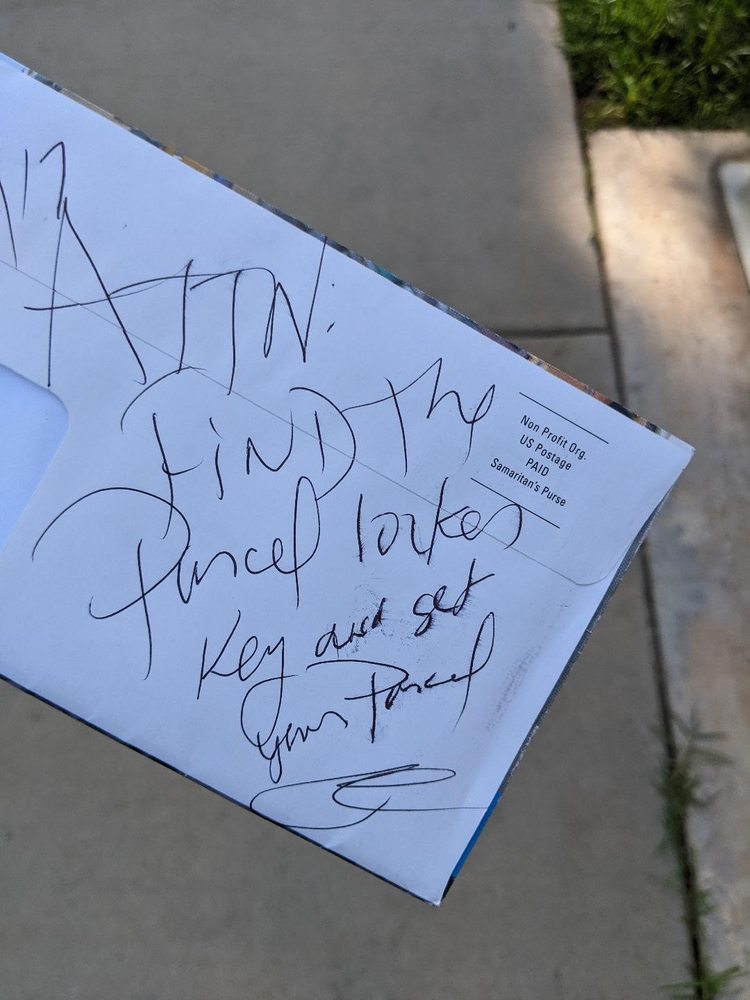 ATTN:
FIND the
Parcel locker
Key and get
your Parcel
Non Profit Org.
US Postage
PAID
Samaritan's Purse